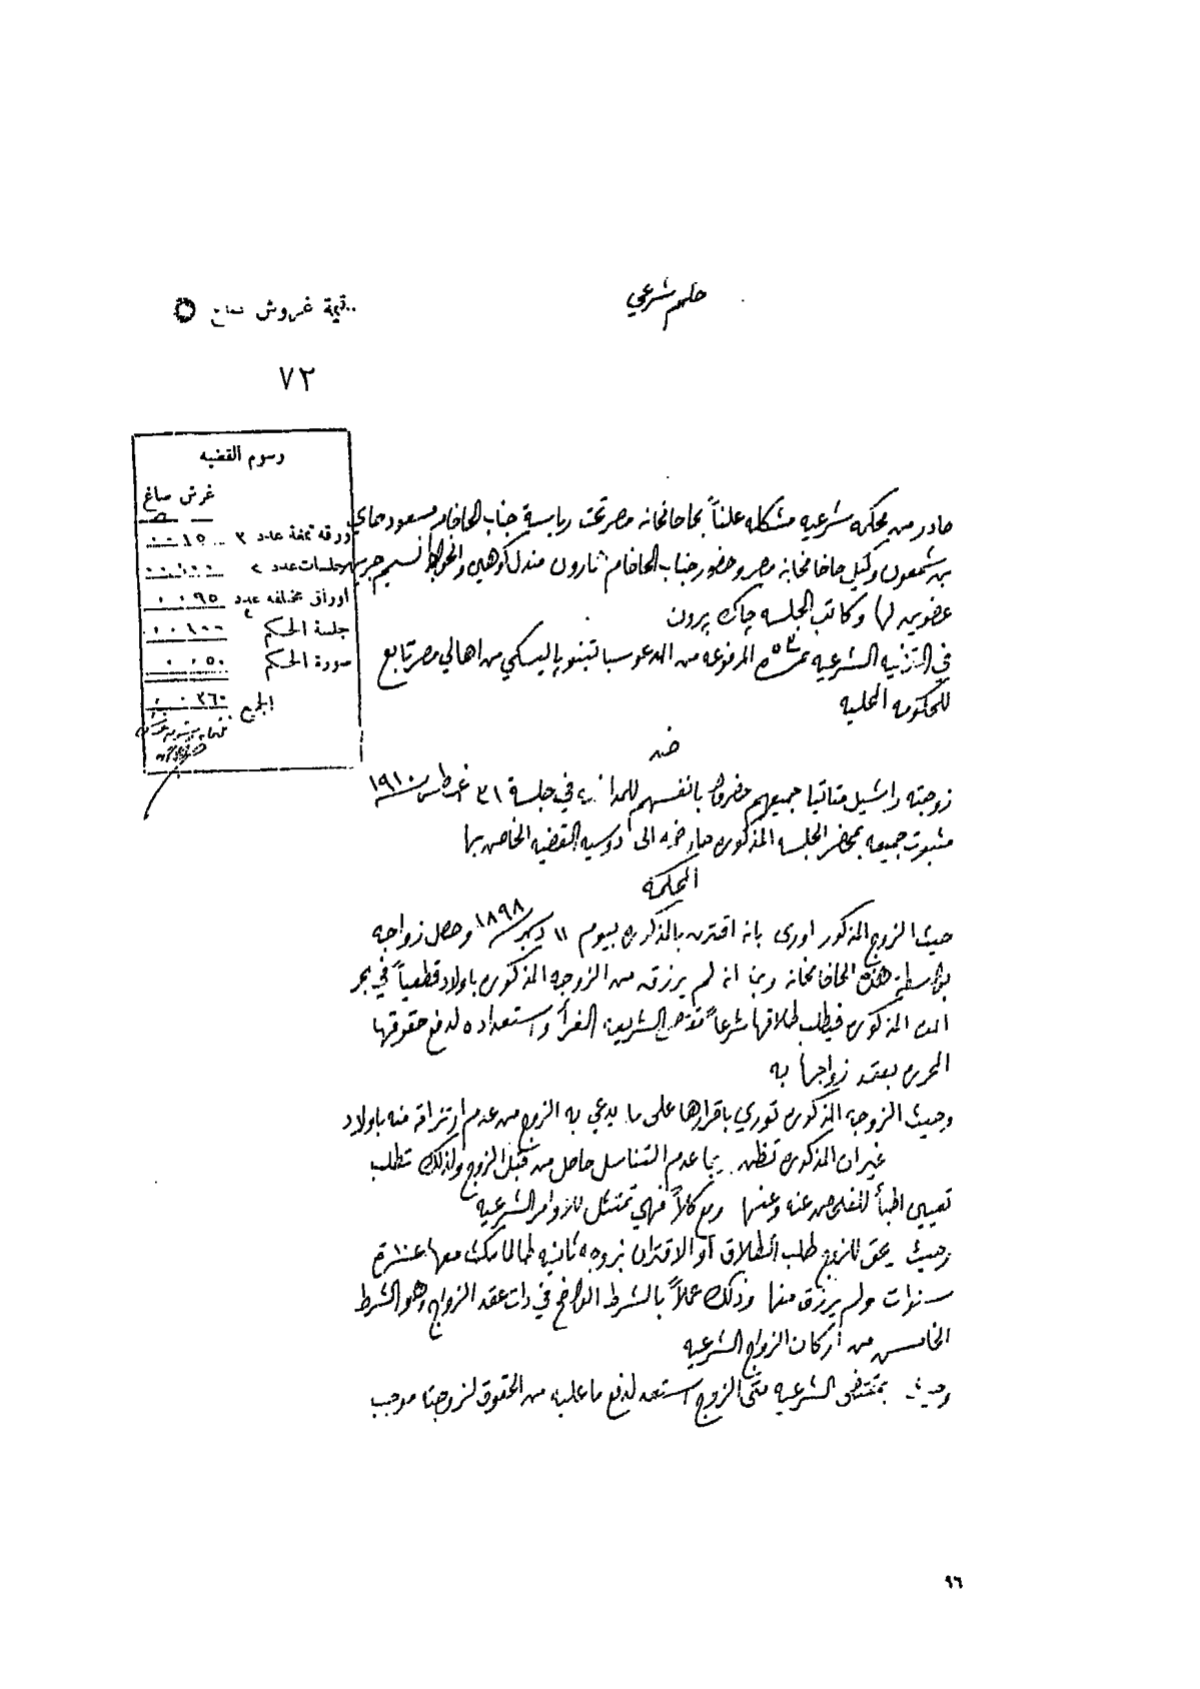 حكم شرعي
قيمة غروش صاغ
٧٢
رسوم القضيه
غرش صاغ
ورقة تمغة عدد ٣ ٠٠١٥
جلسات عدد ٢ ٠٠١٠٠
أوراق مختلفه عدد ٠٠٩٥
جلسة الحكم ٠٠١٠٠
صورة الحكم ٠٠٥٠
الجميع ٠٠٣٦٠
صادر من محكمه شرعيه مشكله علناً بحاخامخانه مصر تحت رياسة جناب الحاخام مسعود حماي
بن شمعون وكيل حاخامخانه مصر وحضور جناب الحاخام آارون مندل كوهين والخواجا نسيم
عضوين لها وكاتب الجلسه چاك پرون
في القضيه الشرعيه نمرة ٥٣ المرفوعه من المدعو سباتينو پاليسكي من اهالي مصر تابع
للحكومه المحليه
ضد
زوجته راشيل متاتيا جميعهم حضروا بانفسهم للمدافعه في جلسة ٣١ غسطس ١٩١٠
مثبوت جميعه بمحضر الجلسه المذكوره الى دوسيه القضيه الخاص بها
المحكمه
حيث الزوج المذكور اورى بانه اقترن بالمذكوره بيوم ١١ دسمبر ١٨٩٨ وحصل زواجه
بواسطة هذه الحاخامخانه وبما انه لم يرزق من الزوجه المذكوره باولاد قطعياً في بحر
المده المذكوره فيطلب طلاقها شرعاً الشريعه الغرأ واستعداده لدفع حقوقها
المحرره بعقد زواجها به
وحيث الزوجه المذكوره توري باقرارها على ما يدعي به الزوج من عدم ارتزاقه منه باولاد
غير ان المذكوره تظن بما عدم التناسل حاصل من قبل الزوج ولذلك تطلب
تعيين اطبأ للفحص عنه وعنها ومع كلاً فهي تمتثل للاوامر الشرعيه
وحيث يحق للزوج طلب الطلاق أو الاقتران بزوجه ثانيه طالما مكث معها عشرة
سنوات ولم يرزق منها وذلك عملاً بالشرط الواضح في ذات عقد الزواج وهو الشرط
الخامس من أركان الزواج الشرعيه
وحيث بمقتضى الشرعيه متى الزوج استعد لدفع ما عليه من الحقوق لزوجته موجب
٩٦